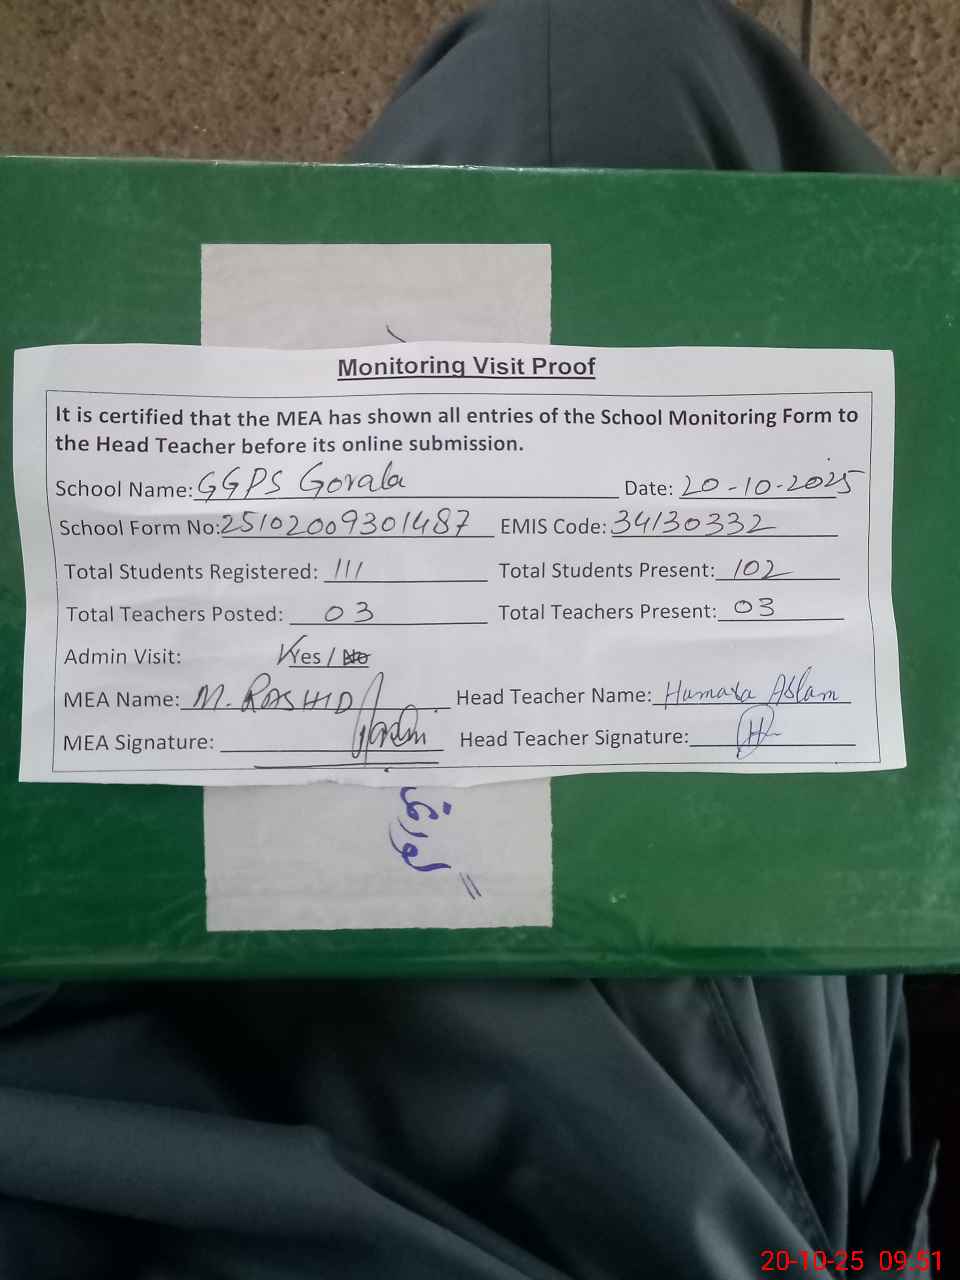 Monitoring Visit Proof
It is certified that the MEA has shown all entries of the School Monitoring Form to
the Head Teacher before its online submission.
School Name: GGPS Gorala Date: 20-10-2025
School Form No: 25102009301487 EMIS Code: 34130332
Total Students Registered: 111 Total Students Present: 102
Total Teachers Posted: 03 Total Teachers Present: 03
Admin Visit: Yes / No
MEA Name: M. RASHID Head Teacher Name: Humaira Aslam
MEA Signature: Head Teacher Signature:
20-10-25 09:51